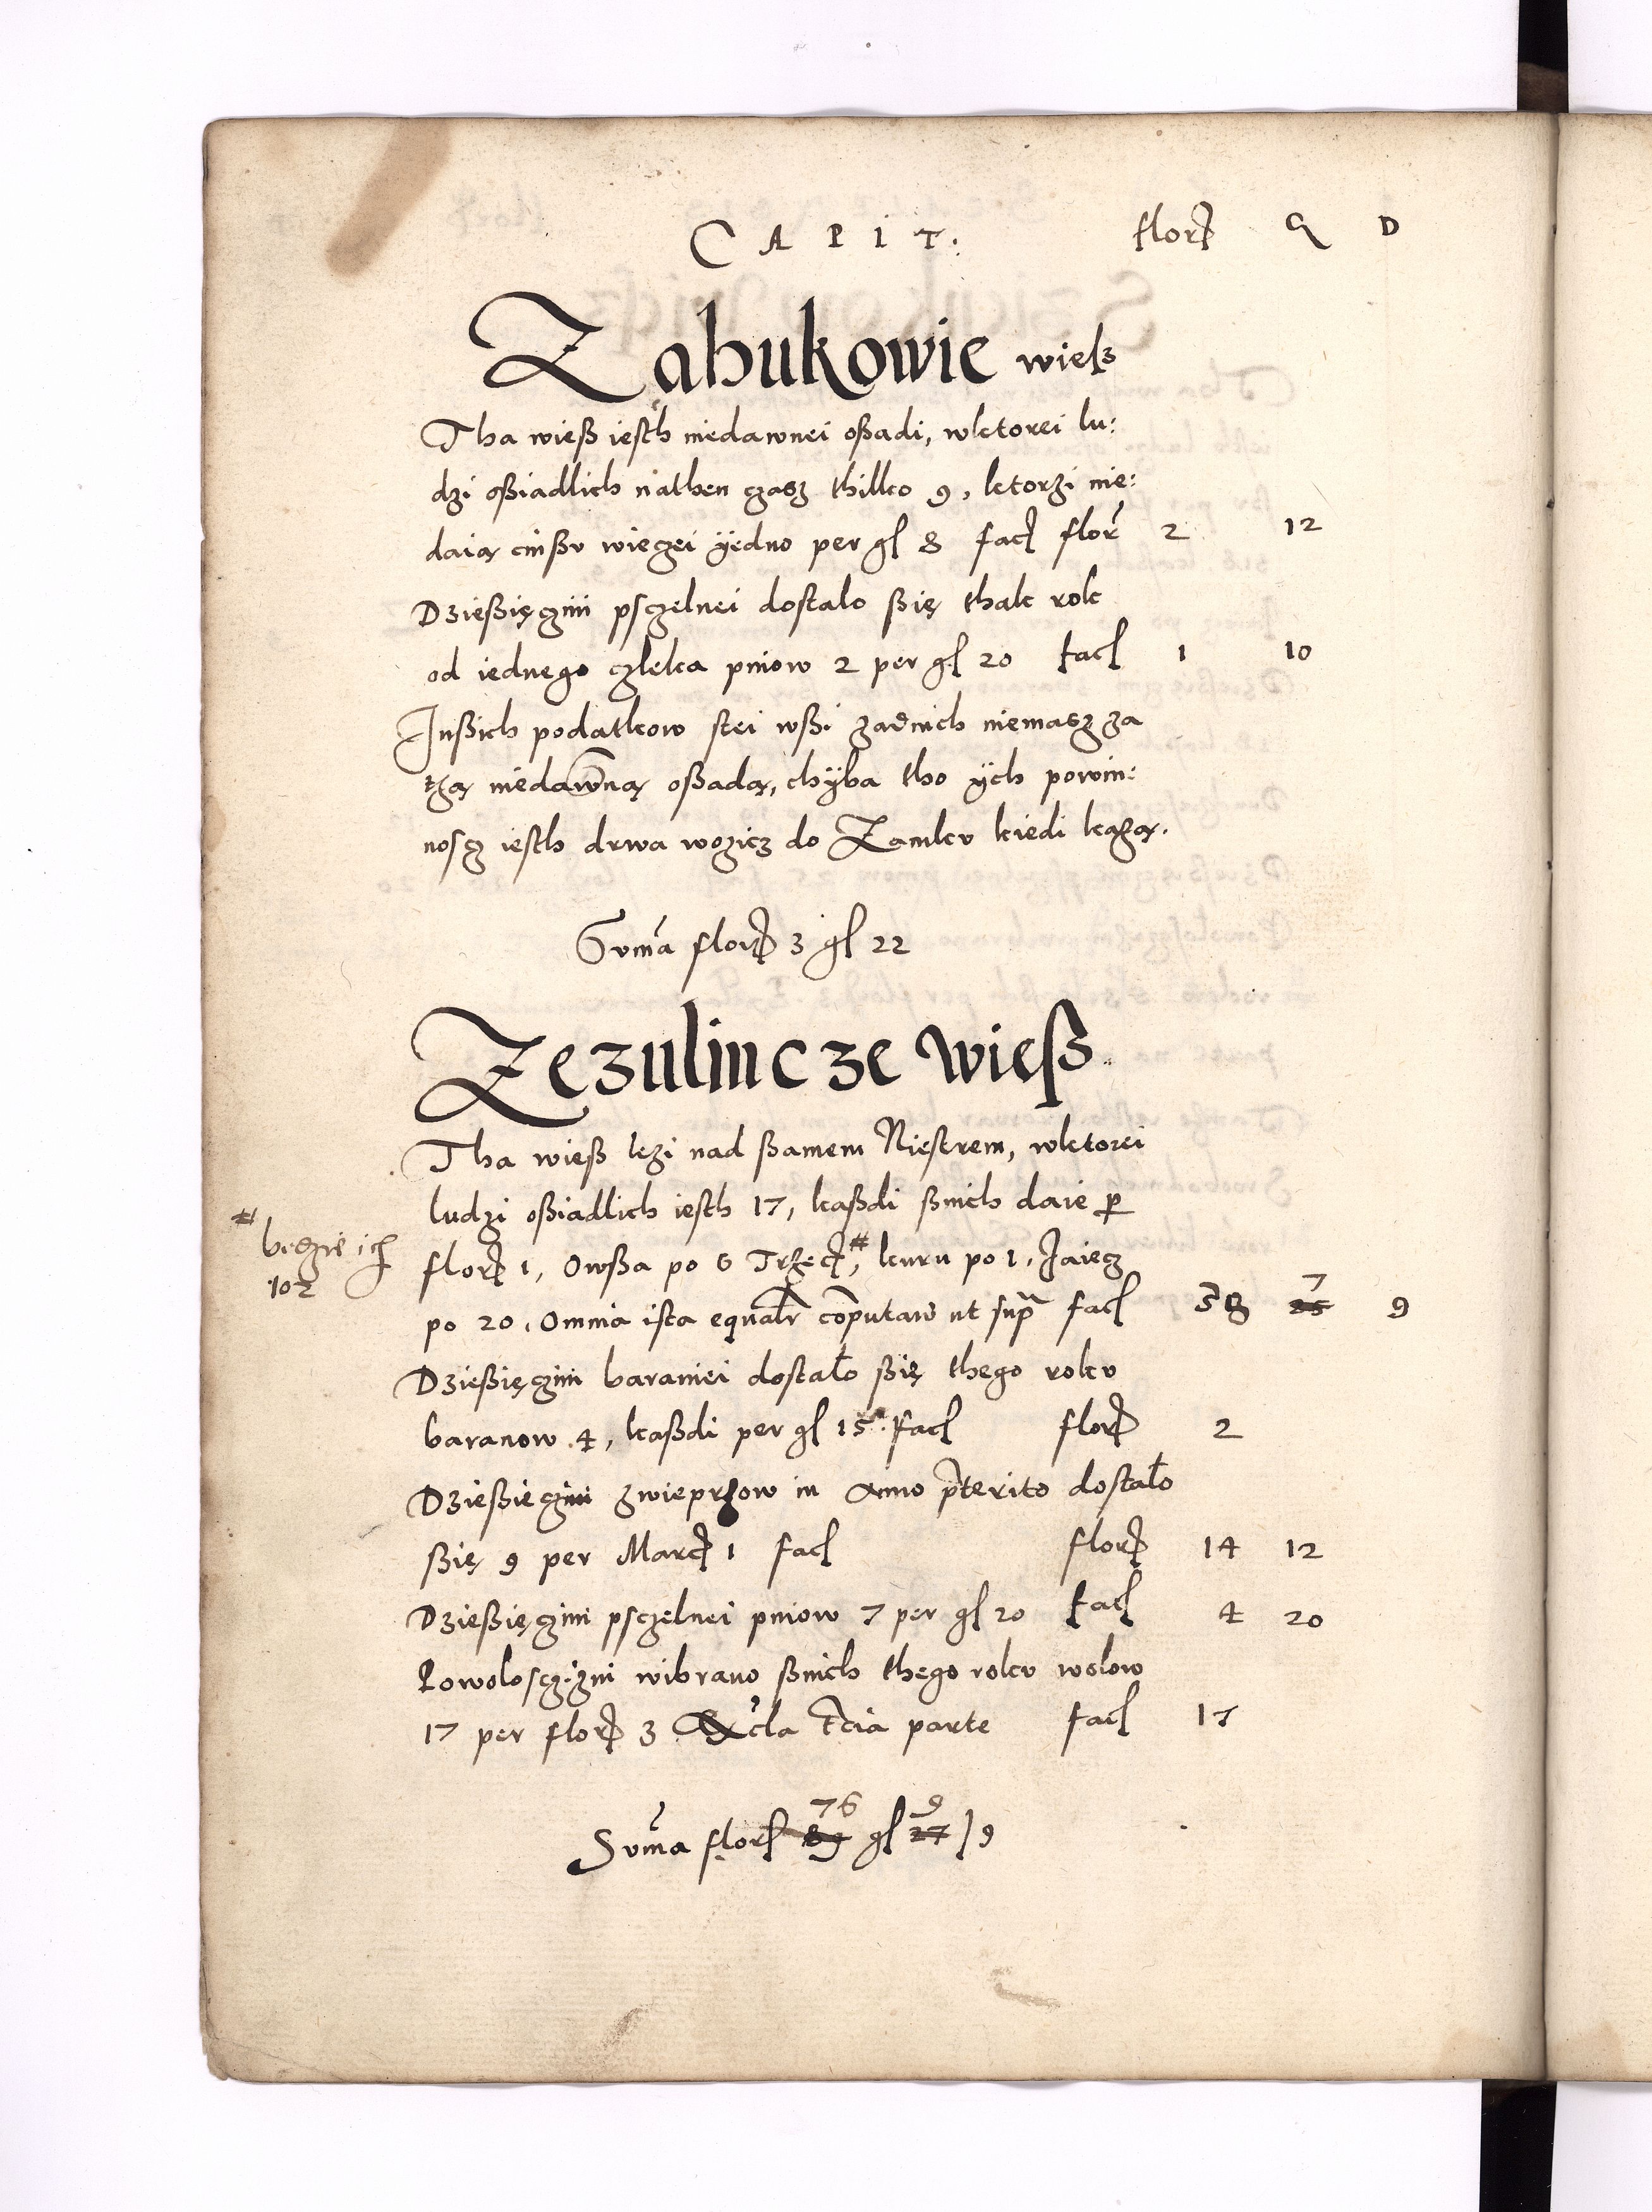 CAPIT: flor G D
Zahukowie wiesz
Tha wieß iesth niedawnei oßadi, wktorei lu:
dzi oßiadlich nathen czasz thilko 9, ktorzi nie:
daią cinßu więczei ÿedno per gl 8 fact flor 2 12
Dzießięczini psczelnei dostalo ßię thak rok
od iednego czleka pniow 2 per gl 20 facl 1 10
Jnßich podatkow stei wßi zadnich niemasz za
tzą niedawną oßadą, chÿba tho ÿch powin:
noscz iesth drwa wozicz do Zamku kiedi każą.
Suma flor 3 gl 22
Zezulincze wieß
Tha wieß lezi nad ßamem Niestrem, wktorei
ludzi oßiadlich iesth 17, kaßdi ßnich daie per
flor 1, Owßa po 6 Trzeci,# kuru po 1, Jaiecz
# będzie ich
102
po 20, Omnia ista equalr computan ut supra facl 38 25 7 9
Dzießięczini baraniei dostalo ßię thego roku
baranow 4, kaßdi per gl 15 facl flor 2
Dzießieczini zwieprzow in Anno preterito dostalo
ßię 9 per Marct 1 facl flor 14 12
Dzießięczini psczelnei pniow 7 per gl 20 facl 4 20
Powolosczizni wibrano ßnich thego roku wolow
17 per flor 3 Excla tercia parte facl 17
Suma flor 89 76 gl 27 9 | 9